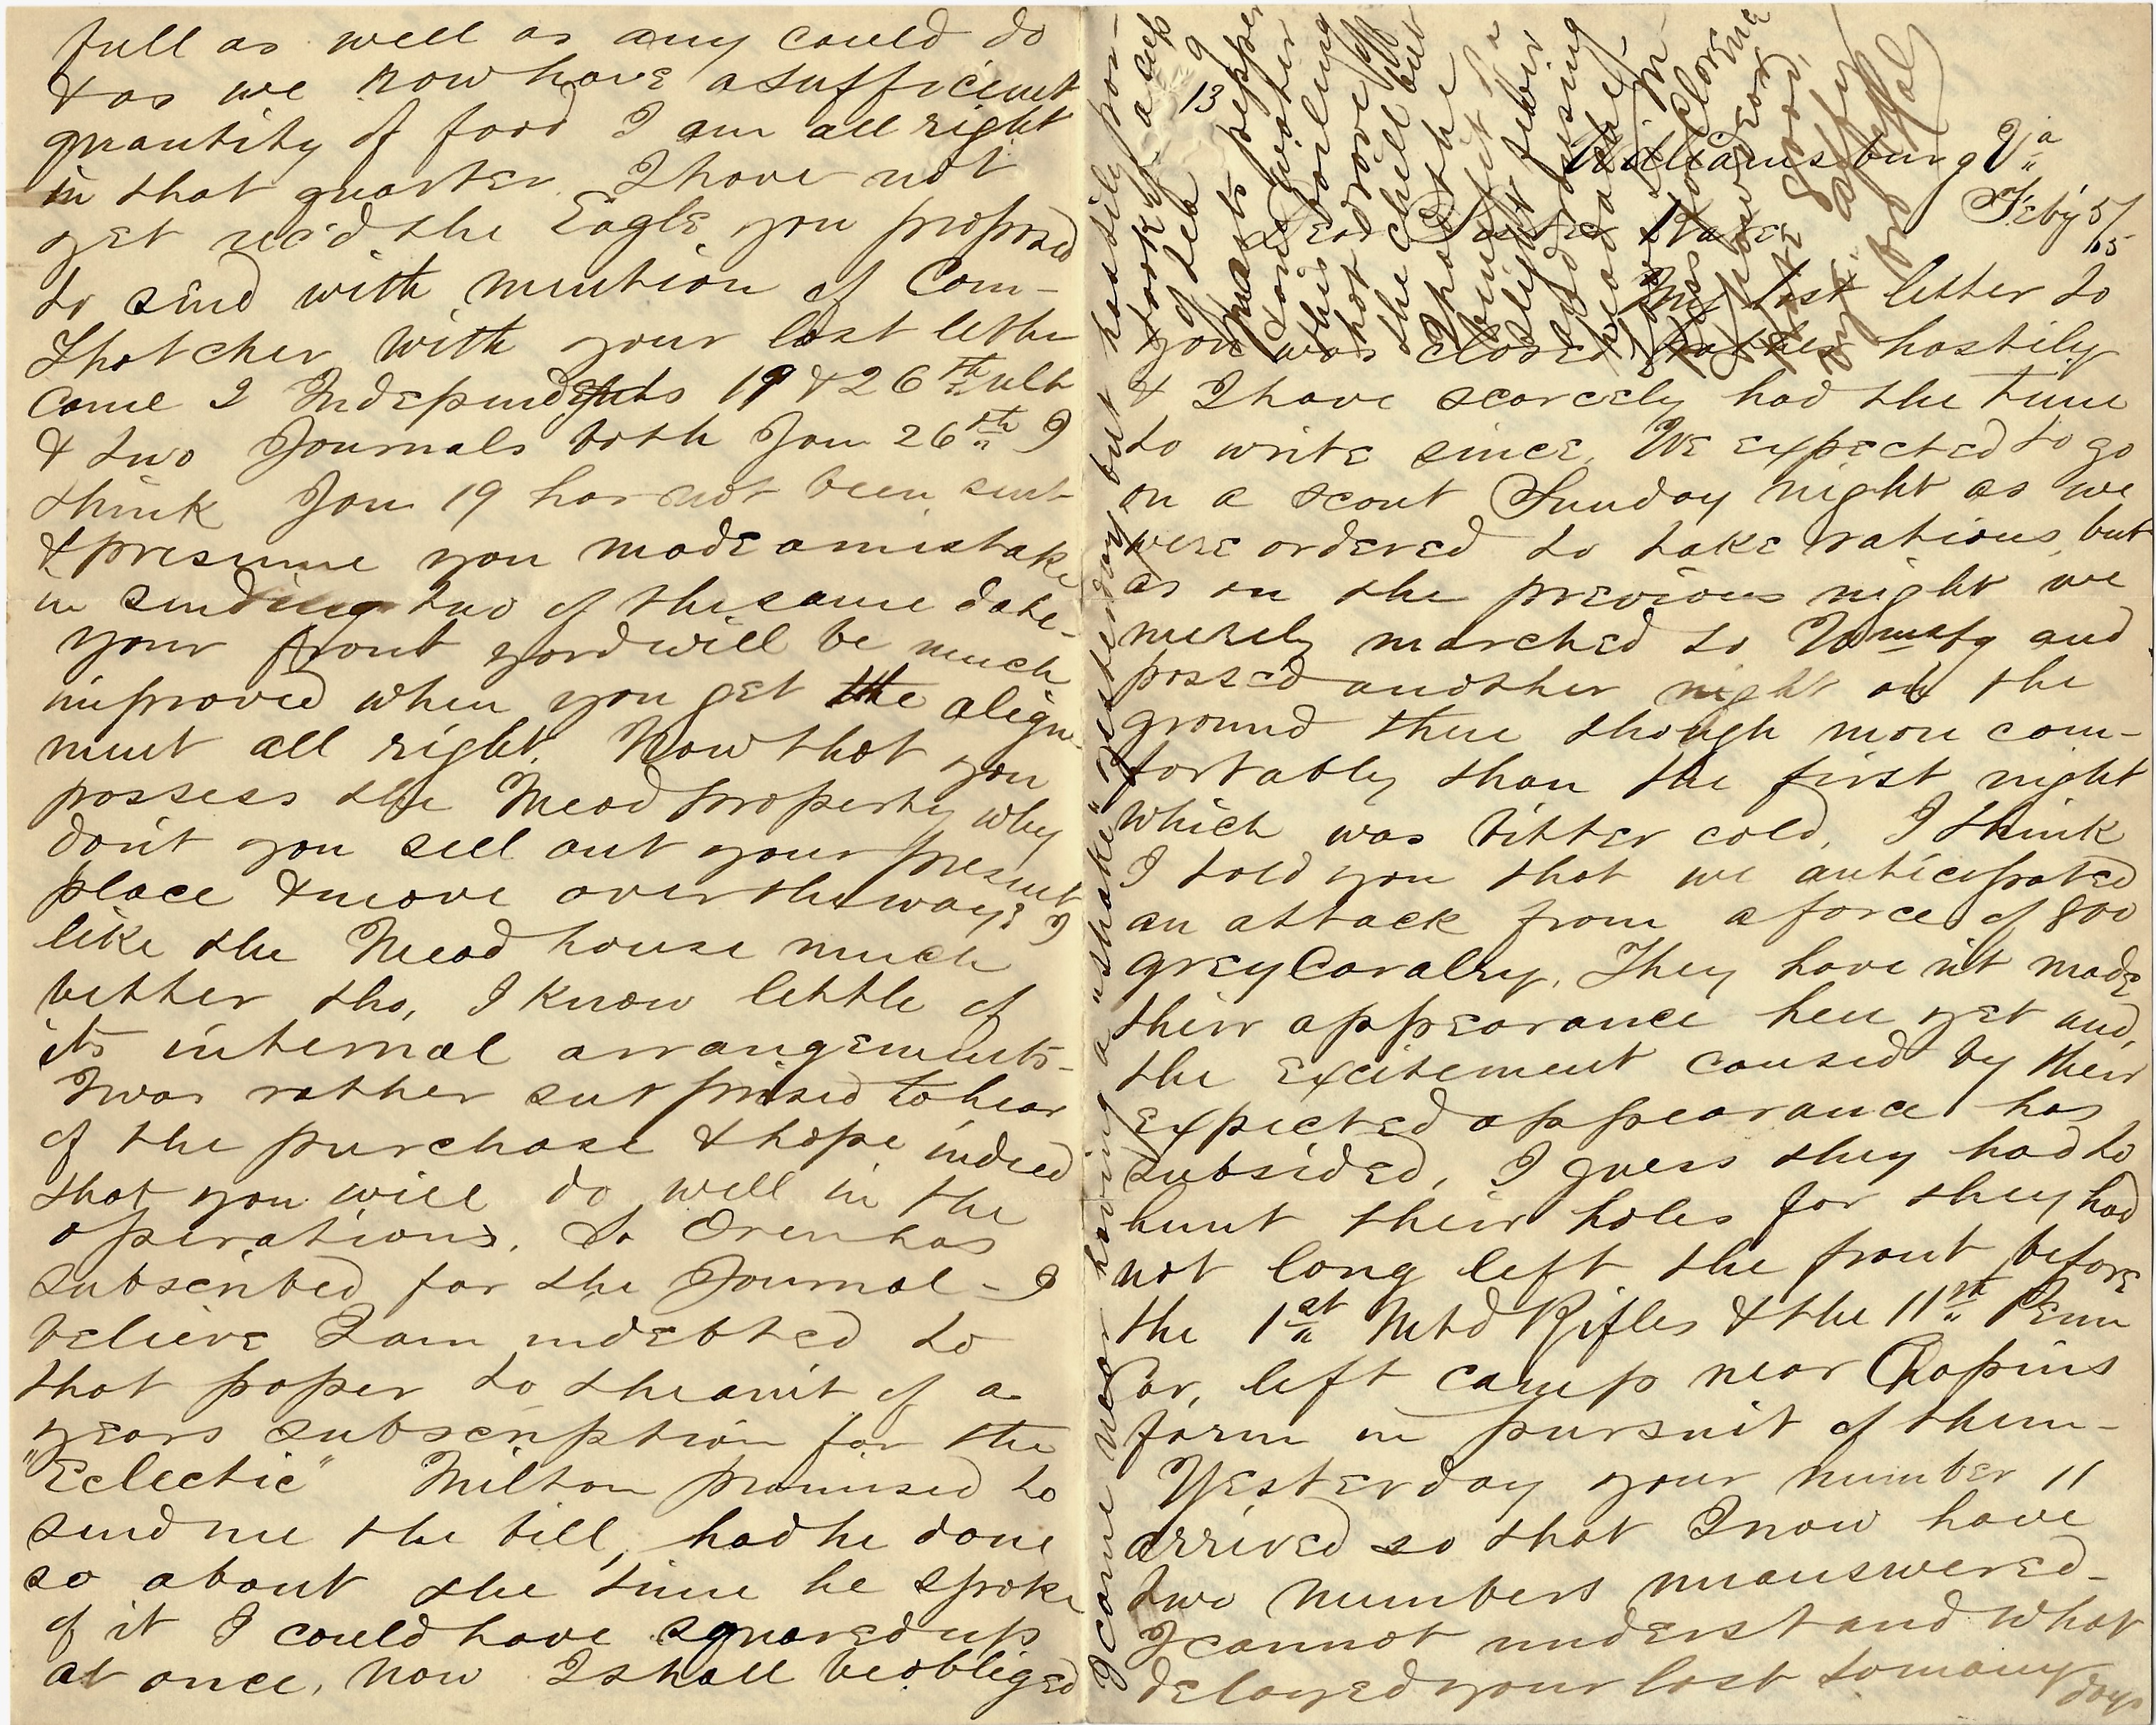 full as well as any could do
& as we now have a sufficient
quantity of food I am all right
in that quarter. I have not
yet rec'd the Eagle you proposed
to send with mention of Com-
Thatcher With your last letter
came 2 Independents 19 & 26th ult
& two Journals both Jan 26th I
think Jan 19 has not been sent
& presume you made a mistake
in sending two of the same date-
your front yard will be much
improved when you get the align-
ment all right. Now that you
possess the Mead property why
don't you sell out your present
place & move over the way? I
like the Mead house much
better tho, I know little of
its internal arrangements-
I was rather surprised to hear
of the purchase & hope indeed
that you will do well in the
operations. So Oren has
subscribed for the Journal - I
believe I am indebted to
that paper to the am't of a
years subscription for the
"Eclectic" Milton promised to
send me the bill, had he done
so about the time he spoke
of it I could have squared up
at once, now I shall be obliged
13
Williamsburg Va
Feb'y 5/65
Dear Sister Kate
My last letter to
you was closed rather hastily
& I have scarcely had the time
to write since. We expected to go
on a scout Sunday night as we
were ordered to take rations, but
as on the previous night we
merely marched to Wmsbg and
passed another night on the
ground there though more com-
fortably than the first night
which was bitter cold. I think
I told you that we anticipated
an attack from a force of 800
grey Cavalry. They have n't made
their appearance here yet and
the excitement caused by their
expected appearance has
subsided. I guess they had to
hunt their holes for they had
not long left the front before
the 1st Mtd Rifles & the 11st Penn
Cav, left camp near Chapins
farm in pursuit of them-
Yesterday your number 11
arrived so that I now have
two numbers unanswered-
I cannot understand what
delayed your last so many days
I came near having a "shake" yesterday but hastily pou-
took a cup
of
pepper
this boiling
hot drove off
the chill but
I had the
slight fever
headache